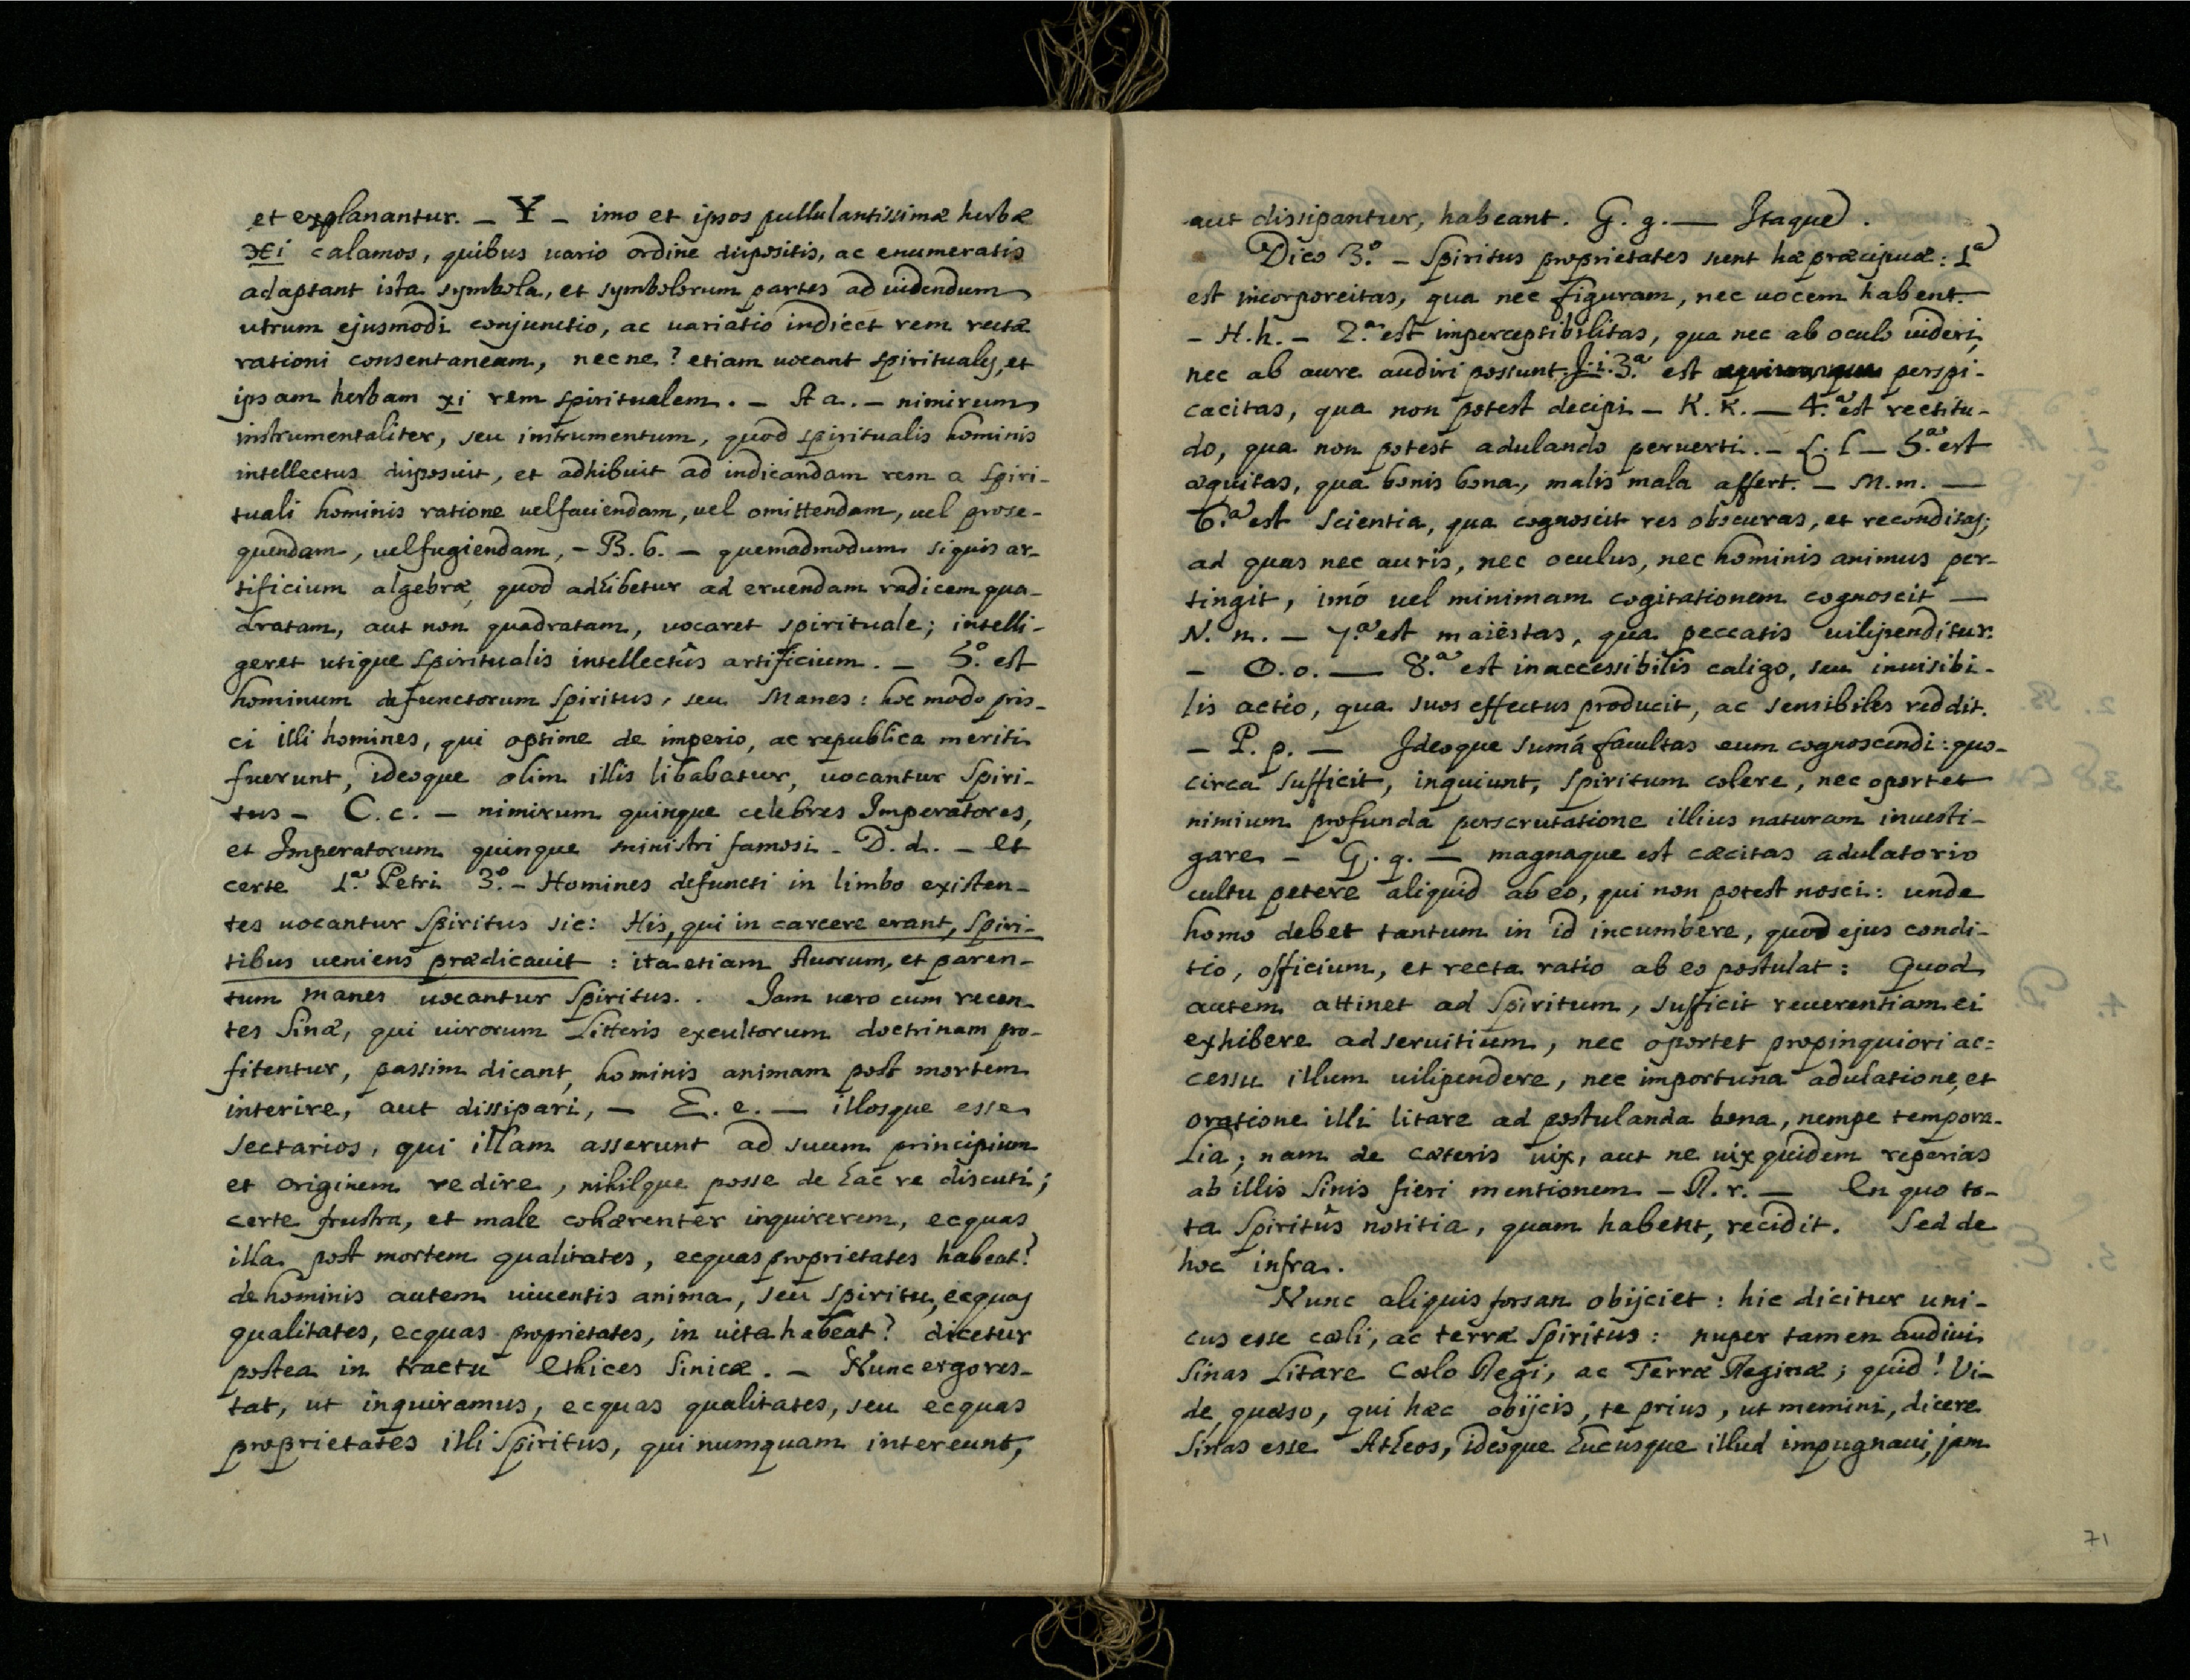 et explanantur. – Y – imo et ipsos pullulantissimæ herbæ
Xi calamos, quibus uario ordine dispositis, ac enumeratis
adaptant ista symbola, et symbolorum partes ad uidendum
utrum ejusmodi conjunctio, ac uariatio indicet rem rectæ
rationi consentaneam, necne? etiam uocant spirituales, et
ipsam herbam xi rem spiritualem. – A a. – nimirum
instrumentaliter, seu instrumentum, quod spiritualis hominis
intellectus disposuit, et adhibuit ad indicandam rem a spiri-
tuali hominis ratione uel faciendam, uel omittendam, uel prose-
quendam, uel fugiendam, – B. b. – quemadmodum si quis ar-
tificium algebræ, quod adhibetur ad eruendam radicem qua-
dratam, aut non quadratam, uocaret spirituale; intelli-
geret utique spiritualis intellectûs artificium. – 5.º est
hominum defunctorum Spiritus, seu Manes: hoc modo pris-
ci illi homines, qui optime de imperio, ac republica meriti
fuerunt, ideoque olim illis libabatur, uocantur Spiri-
tus – C. c. – nimirum quinque celebres Imperatores,
et Imperatorum quinque ministri famosi – D. d. – et
certe 1.ª Petri 3.º – Homines defuncti in limbo existen-
tes uocantur Spiritus sic: His, qui in carcere erant, Spiri-
tibus ueniens prædicauit: ita etiam Auorum, et paren-
tum manes uocantur Spiritus. . Jam uero cum recen-
tes Sinæ, qui uirorum Litteris excultorum doctrinam pro-
fitentur, passim dicant, hominis animam post mortem
interire, aut dissipari, – E. e. – illosque esse
sectarios, qui illam asserunt ad suum principium
et originem redire, nihilque posse de hac re discuti;
certe frustra, et male cohærenter inquirerem, ecquas
illa post mortem qualitates, ecquas proprietates habeat?
de hominis autem uiuentis anima, seu spiritu, ecquas
qualitates, ecquas proprietates, in uita habeat? dicetur
postea in tractu Ethices Sinicæ. – Nunc ergo res-
tat, ut inquiramus, ecquas qualitates, seu ecquas
proprietates illi Spiritus, qui numquam intereunt,
aut dissipantur, habeant. G. g. – Itaque.
Dico 3.º – Spiritus proprietates sunt hæ præcipuæ: 1ª
est incorporeitas, qua nec figuram, nec uocem habent.
– H. h. – 2.ª est imperceptibilitas, qua nec ab oculo uideri,
nec ab aure audiri possunt. J. i. 3.ª est perspi-
cacitas, qua non potest decipi – K. K. – 4.ª est rectitu-
do, qua non potest adulando peruerti. – L. l – 5.ª est
æquitas, qua bonis bona, malis mala affert. – M. m. –
6.ª est scientia, qua cognoscit res obscuras, et reconditas;
ad quas nec auris, nec oculus, nec hominis animus per-
tingit, imó uel minimam cogitationem cognoscit –
N. n. – 7.ª est maiestas, qua peccatis uilipenditur.
– O. o. – 8.ª est inaccessibilis caligo, seu inuisibi-
lis actio, qua suos effectus producit, ac sensibiles reddit.
– P. p. – Ideoque sumá facultas eum cognoscendi: quo-
circa sufficit, inquiunt, spiritum colere, nec oportet
nimium profunda perscrutatione illius naturam inuesti-
gare – Q. q. – magnaque est cæcitas adulatorio
cultu petere aliquid ab eo, qui non potest nosci: unde
homo debet tantum in id incumbere, quod ejus condi-
tio, officium, et recta ratio ab eo postulat: Quod
autem attinet ad Spiritum, sufficit reuerentiam ei
exhibere ad seruitium, nec oportet propinquiori ac=
cessu illum uilipendere, nec importuna adulatione, et
oratione illi litare ad postulanda bona, nempe tempora-
lia; nam de cæteris uix, aut ne uix quidem reperias
ab illis Sinis fieri mentionem – R. r. – En quo to-
ta Spiritûs notitia, quam habent, recidit. Sed de
hoc infra.
Nunc aliquis forsan obijciet: hic dicitur uni-
cus esse cæli, ac terræ Spiritus: nuper tamen audiui
Sinas Litare Cælo Regi, ac Terræ Reginæ; quid! Vi-
de, quæso, qui hæc obijcis, te prius, ut memini, dicere
Sinas esse Atheos, ideoque hucusque illud impugnaui, jam
71